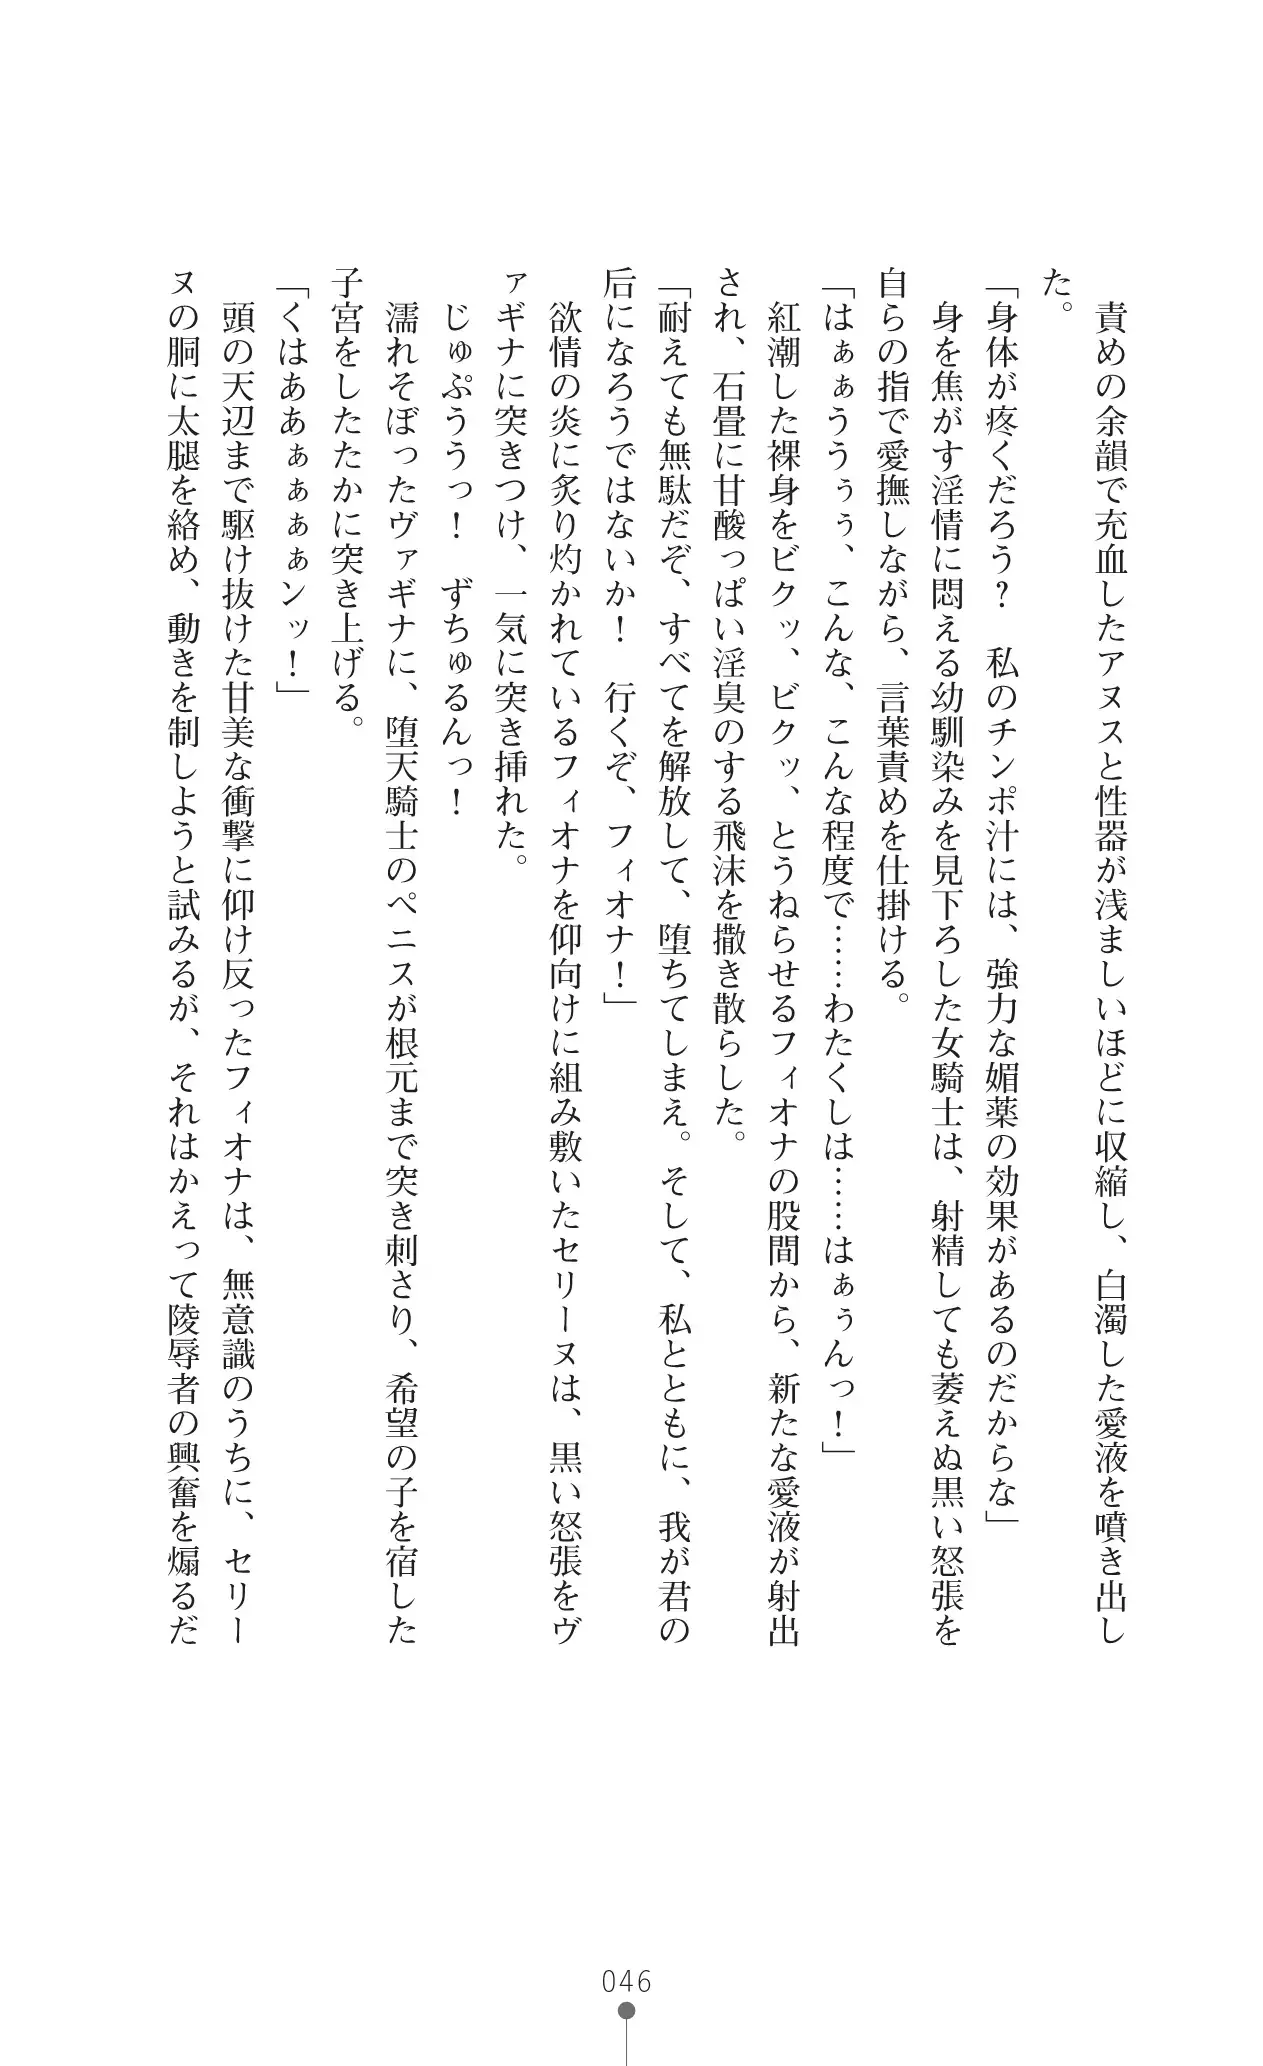 責めの余韻で充血したアヌスと性器が浅ましいほどに収縮し、白濁した愛液を噴き出し
た。
「身体が疼くだろう？　私のチンポ汁には、強力な媚薬の効果があるのだからな」
身を焦がす淫情に悶える幼馴染みを見下ろした女騎士は、射精しても萎えぬ黒い怒張を
自らの指で愛撫しながら、言葉責めを仕掛ける。
「はぁぁううぅぅ、こんな、こんな程度で……わたくしは……はぁぅんっ！」
紅潮した裸身をビクッ、ビクッ、とうねらせるフィオナの股間から、新たな愛液が射出
され、石畳に甘酸っぱい淫臭のする飛沫を撒き散らした。
「耐えても無駄だぞ、すべてを解放して、堕ちてしまえ。そして、私とともに、我が君の
后になろうではないか！　行くぞ、フィオナ！」
欲情の炎に炙り灼かれているフィオナを仰向けに組み敷いたセリーヌは、黒い怒張をヴ
ァギナに突きつけ、一気に突き挿れた。
じゅぷううっ！　ずちゅるんっ！
濡れそぼったヴァギナに、堕天騎士のペニスが根元まで突き刺さり、希望の子を宿した
子宮をしたたかに突き上げる。
「くはああぁぁぁぁンッ！」
頭の天辺まで駆け抜けた甘美な衝撃に仰け反ったフィオナは、無意識のうちに、セリー
ヌの胴に太腿を絡め、動きを制しようと試みるが、それはかえって陵辱者の興奮を煽るだ
046